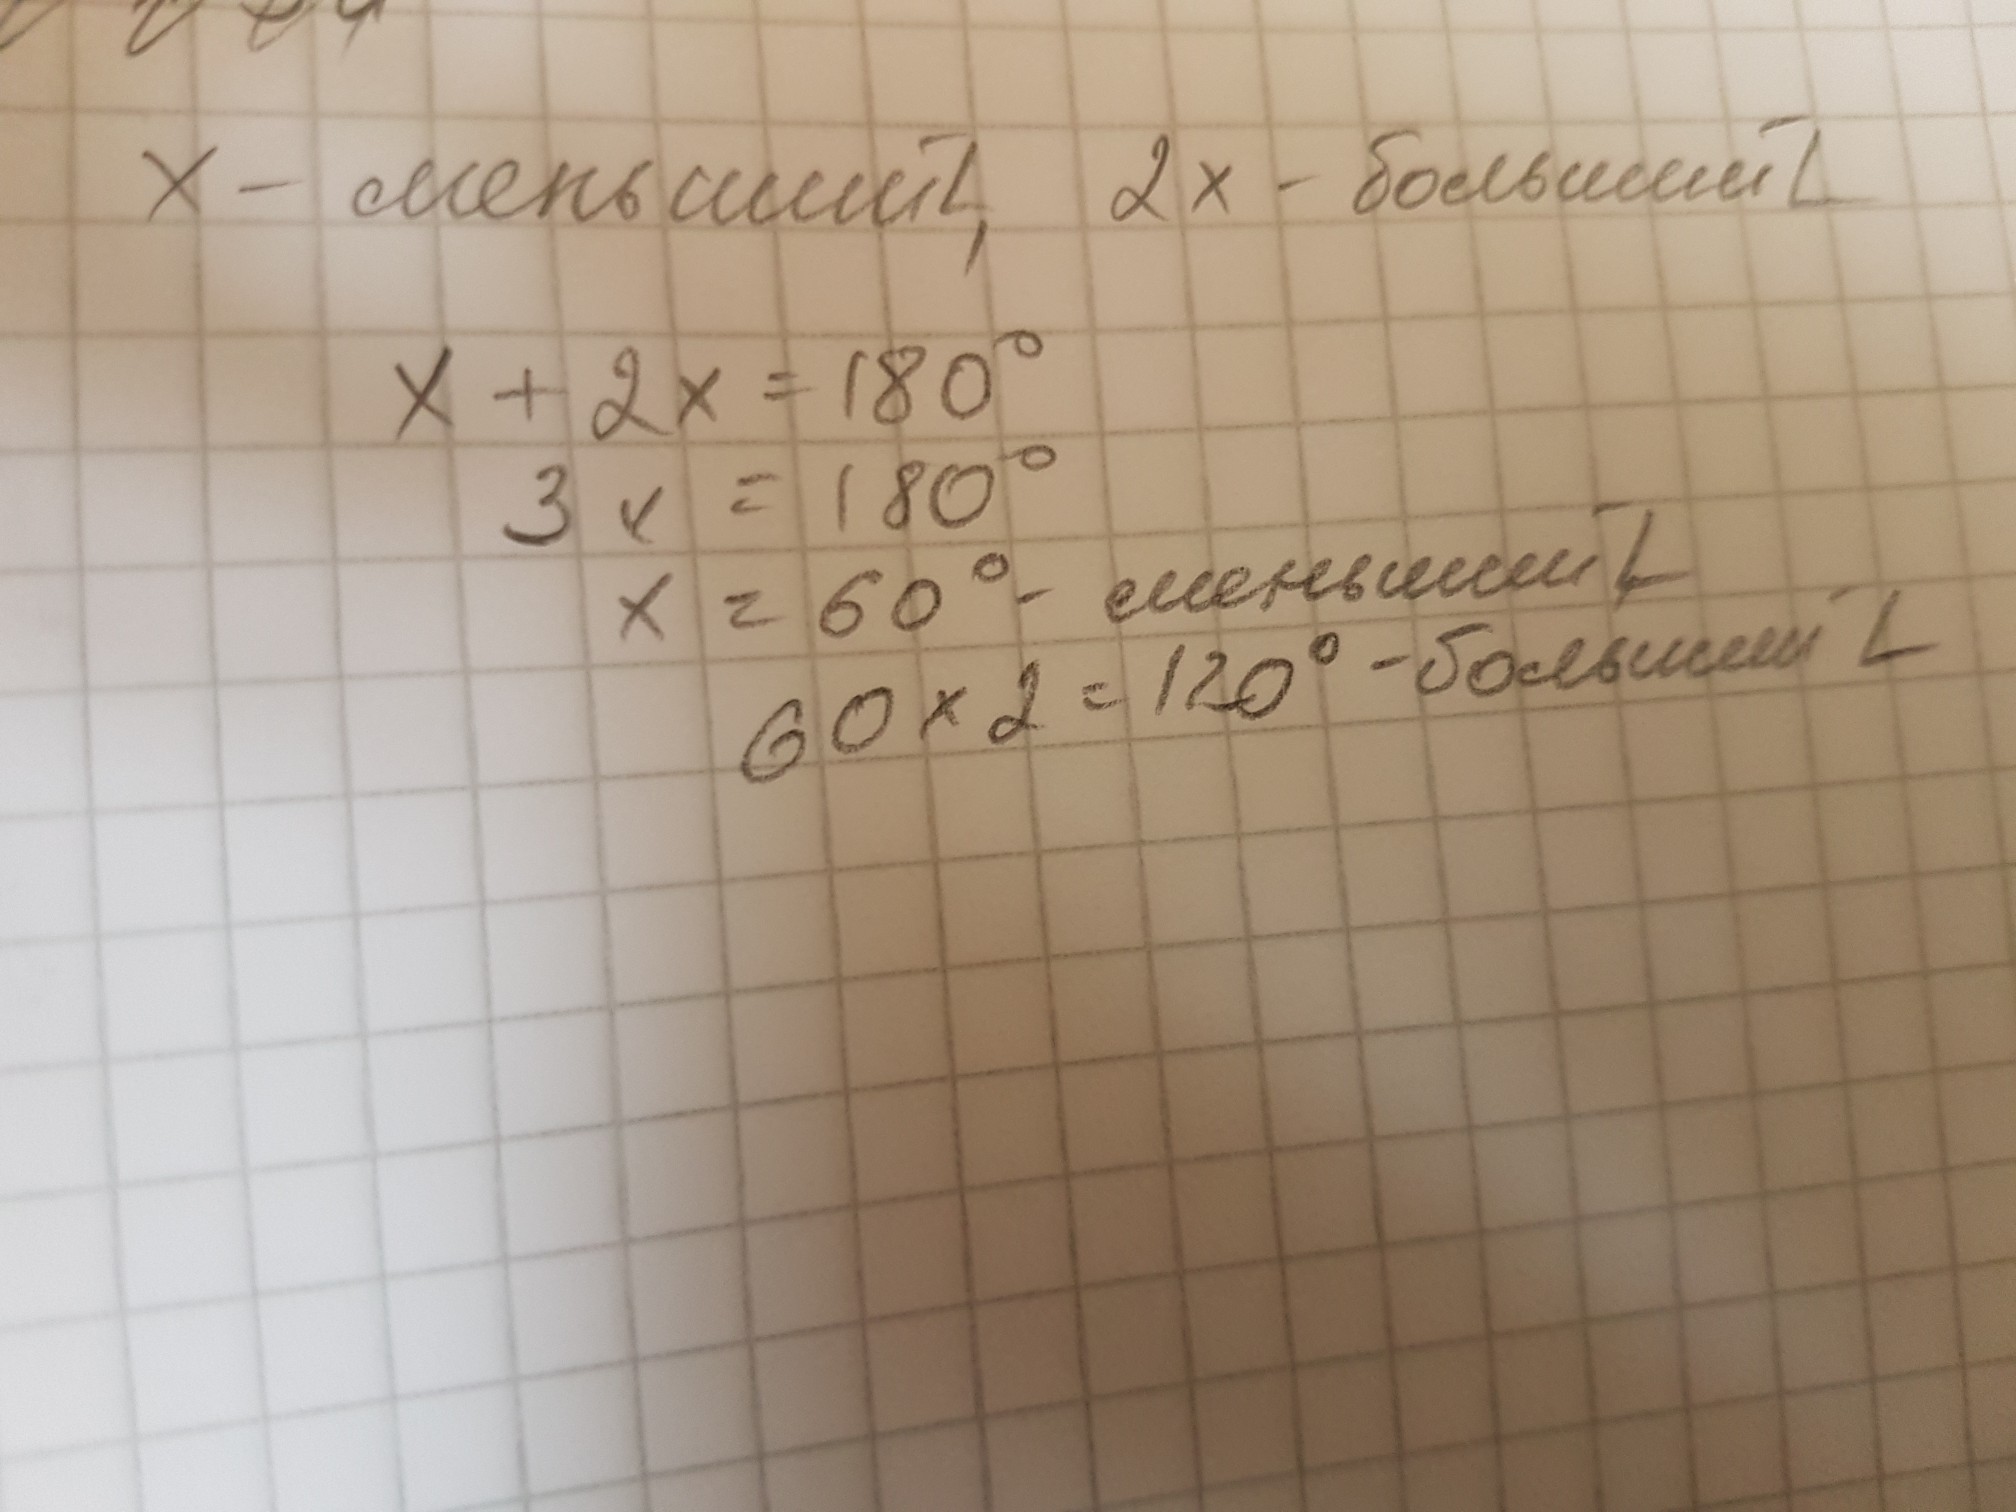 x - меньший ∟, 2x - больший ∟
x + 2x = 180°
3x = 180°
x = 60° - меньший ∟
60 x 2 = 120° - больший ∟